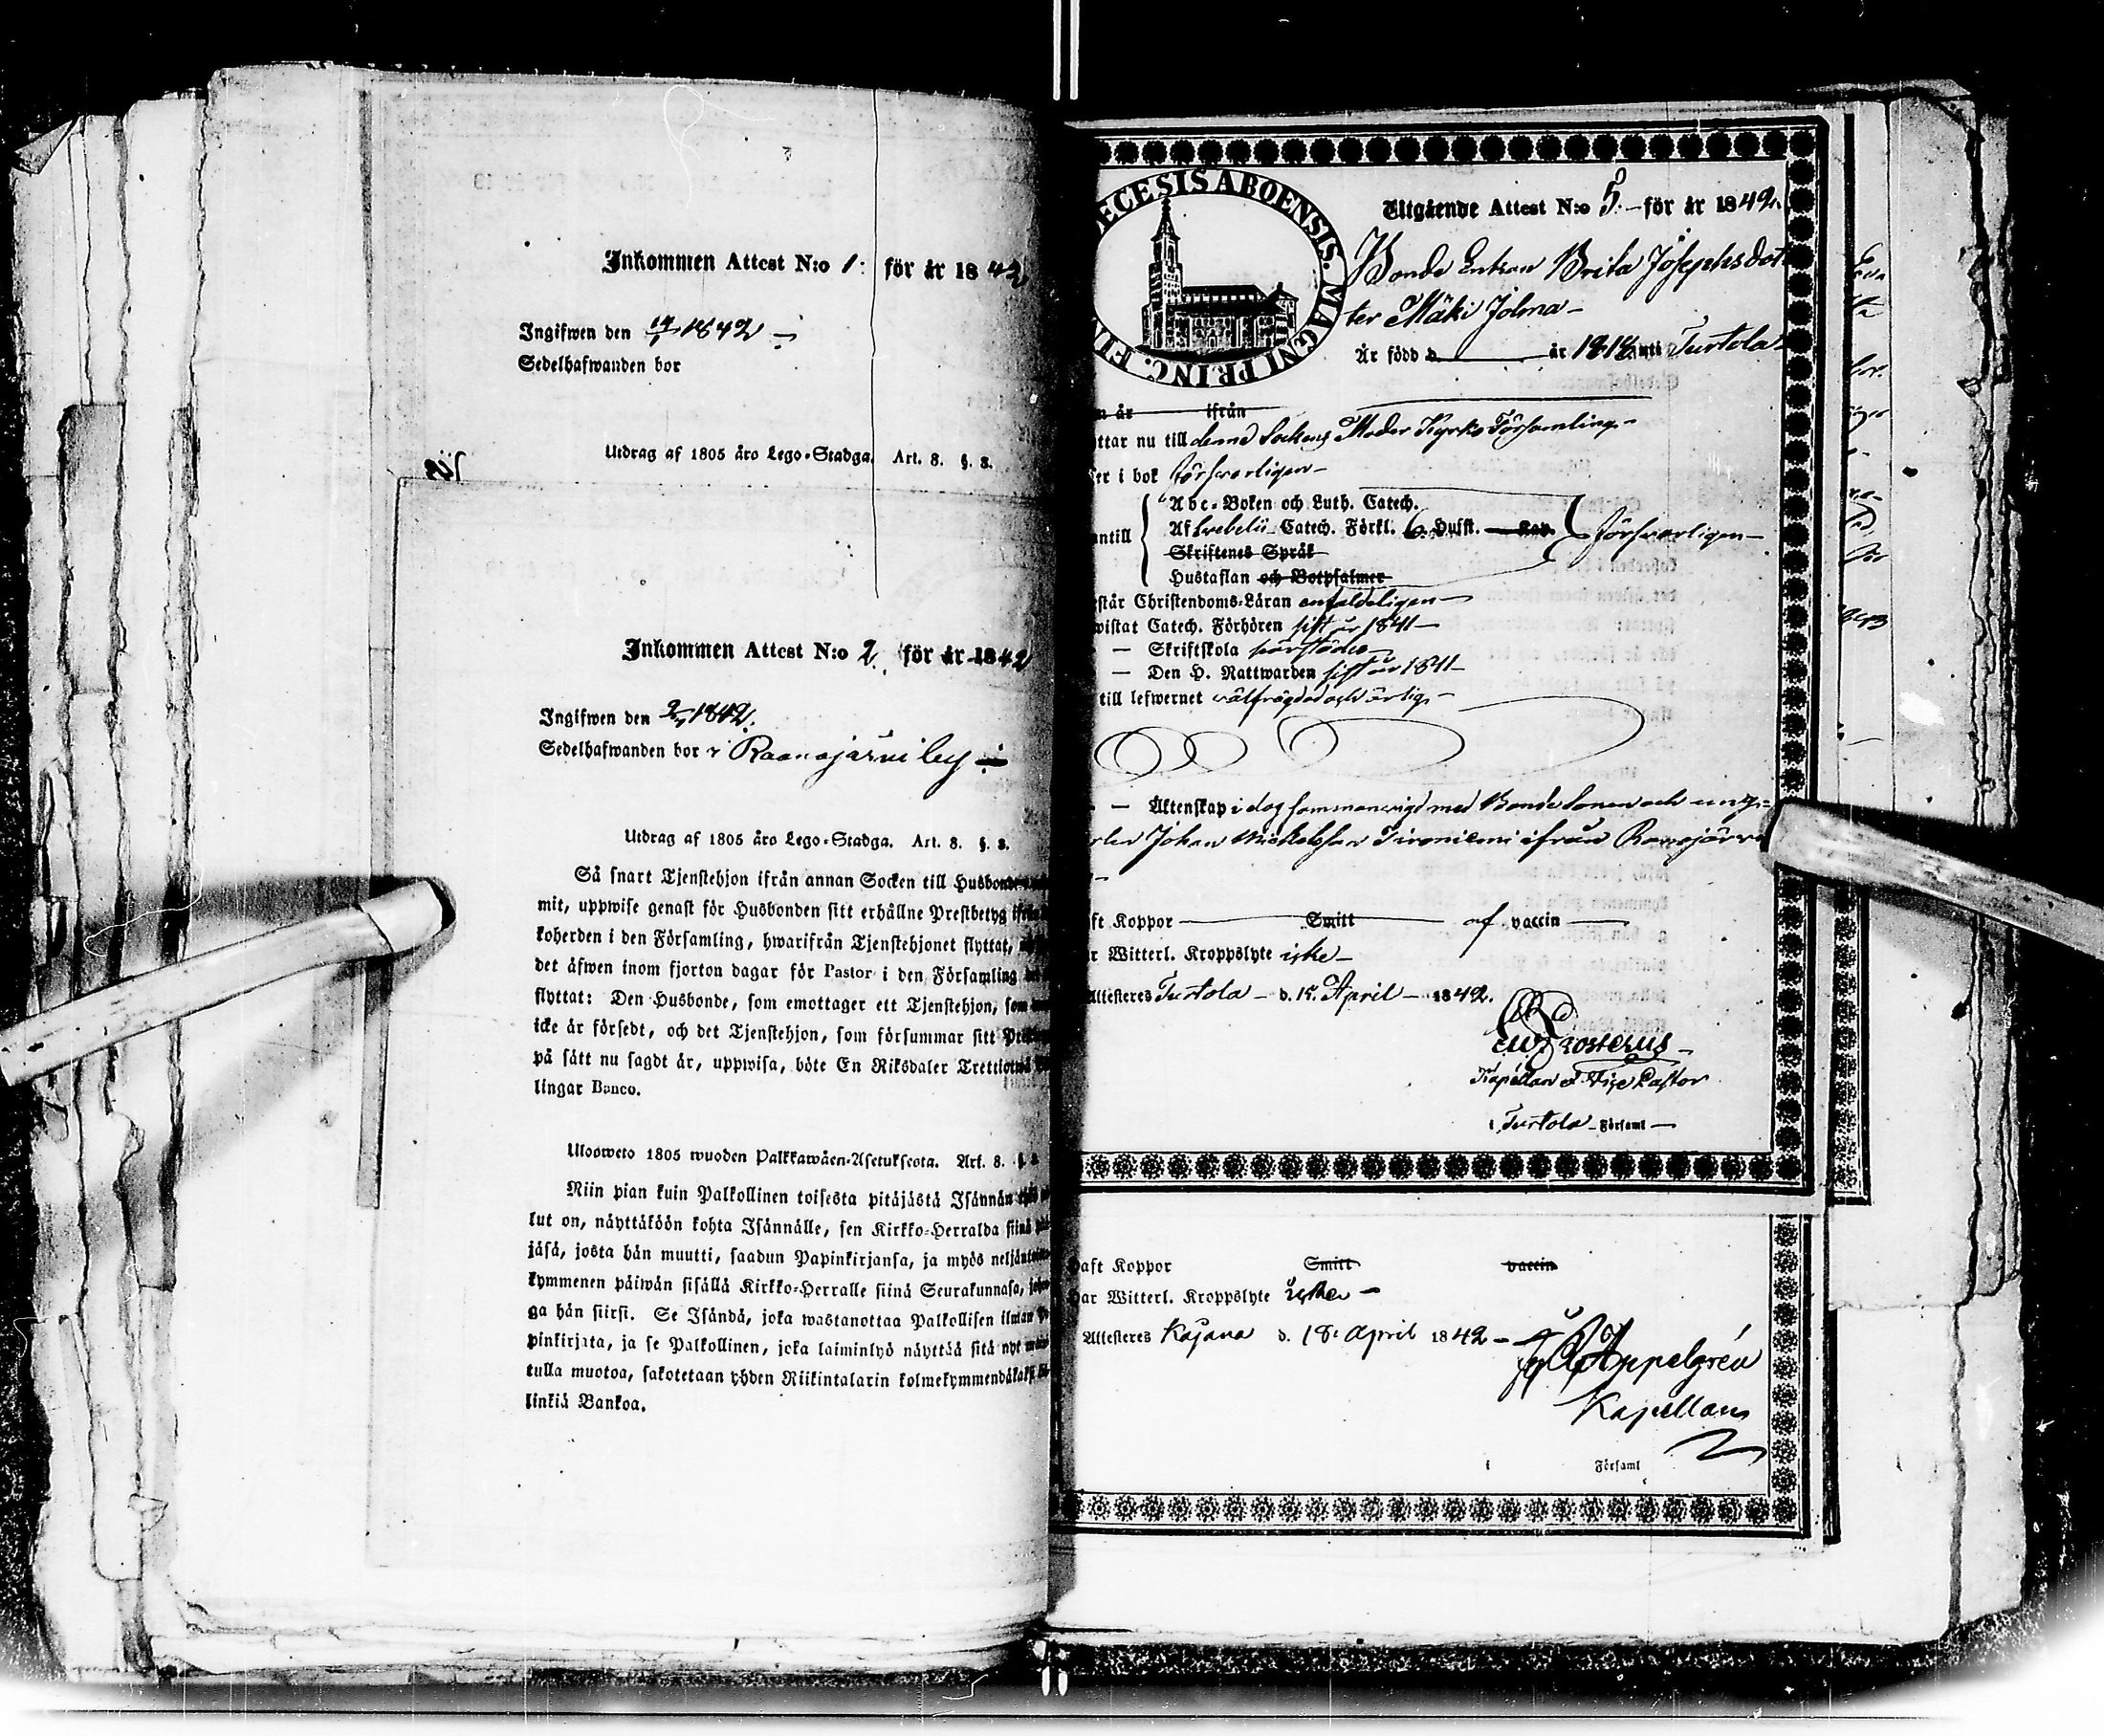 Inkommen Attest N:o 1: för år 1842
Ingifwen den 1842
Sedelhafwanden bor
Utdrag af 1805 års Lego-Stadga. Art. 8. §. 8.
Inkommen Attest N:o 2. för år 1842
Ingifwen den 1842.
Sedelhafwanden bor i Raanojärvi by
Utdrag af 1805 års Lego-Stadga. Art. 8. §. 8.
Så snart Tjenstehjon ifrån annan Socken till Husbonden
mit, uppwise genast för Husbonden sitt erhållne Prestbetyg
koherden i den Församling, hwarifrån Tjenstehjonet flyttat,
det äfwen inom fjorton dagar för Pastor i den Församling
flyttat: Den Husbonde, som emottager ett Tjenstehjon, som
icke är försedt, och det Tjenstehjon, som försummar sitt
på sätt nu sagdt är, uppwisa, böte En Riksdaler Trettiotwå
lingar Banco.
Ulosweto 1805 wuoden Palkkawäen-Asetuksesta. Art. 8. §. 8
Niin pian kuin Palkollinen toisesta pitäjästä Isännän
lut on, näyttäköön kohta Isännälle, sen Kirkko-Herralda siinä
jäsä, josta hän muutti, saadun Papinkirjansa, ja myös
kymmenen päiwän sisällä Kirkko-Herralle siinä Seurakunnasa,
ga hän siirsi. Se Isändä, joka wastanottaa Palkollisen ilman
pinkirjata, ja se Palkollinen, joka laiminlyö näyttää sitä nyt
tulla muotoa, sakotetaan yhden Riikintalarin kolmekymmendäkaksi
linkiä Bankoa.
ECESIS ABOENSIS. MAGNI PRINC. FIN
Utgående Attest N:o 5. för år 1842.
Bonde Enkan Brita Josephsdot
ter Mäki Jolma
Är född d. år 1818 uti Turtola
år ifrån
ttar nu till denna Sockens Moder Kyrko Församling
er i bok försvarligen
Abc-Boken och Luth. Catech.
Af Svebelii Catech. Förkl. 6. Hufst. Kap. försvarligen
antill
Skriftenes Språk
Hustaflan och Botpsalmer
står Christendoms-Läran enfaldeligen
wistat Catech. Förhören sist år 1841
— Skriftskola
— Den H. Nattwarden sist år 1841
till lefwernet wälfrägdad och ärlig
— Äktenskap i dag sammanvigd med Bonde Sonen och ung=
Johan Michelsson ifrån Raanojärvi
ft Koppor Smitt af vaccin
r Witterl. Kroppslyte icke
Attesteres Turtola d. 17. April 1842.
Frosterus
Kapellan & Vice Pastor
i Turtola Församl
aft Koppor Smitt vaccin
ar Witterl. Kroppslyte icke
Attesteres Kajana d. 18. April 1842
Appelgrén
Kapellan
i Församl